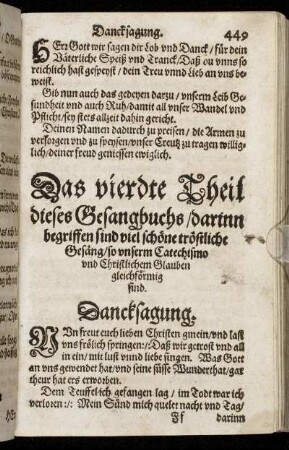 Dancksagung.
449
HErr Gott wir sagen dir Lob vnd Danck / für dein
Väterliche Speiß vnd Tranck / Daß du vnns so
reichlich hast gespeyst / dein Trew vnnd Lieb an vns be-
weist.
Gib nun auch das gedeyen darzu / vnserm Leib Ge-
sundheit vnd auch Ruh / damit all vnser Wandel vnd
Pflicht / sey stets allzeit dahin gericht.
Deinen Namen dadurch zu preisen / die Armen zu
versorgen vnd zu speysen / vnser Creutz zu tragen willig-
lich / deiner freud geniessen ewiglich.
Das vierdte Theil
dieses Gesangbuchs / darinn
begriffen sind viel schöne tröstliche
Gesäng / so vnserm Catechismo
vnd Christlichem Glauben
gleichförmig
sind.
Dancksagung.
NVn frewt euch lieben Christen gmein / vnd last
vns frölich springen :/: Daß wir getrost vnd all
in ein / mit lust vnnd liebe singen. Was Gott
an vns gewendet hat / vnd seine süsse Wunderthat / gar
thewr hat ers erworben.
Dem Teuffel ich gefangen lag / im Todt war ich
verloren :/: Mein Sünd mich quelet nacht vnd Tag /
Ff
darinn